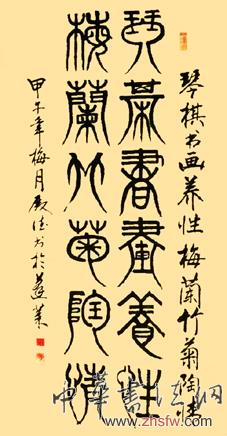 琴棋书画养性梅蘭竹菊陶情
琴棊書畫養性
梅蘭竹菊陶情
甲午年梅月殿书於蓬莱
中華書法網
www.zhsfw.com